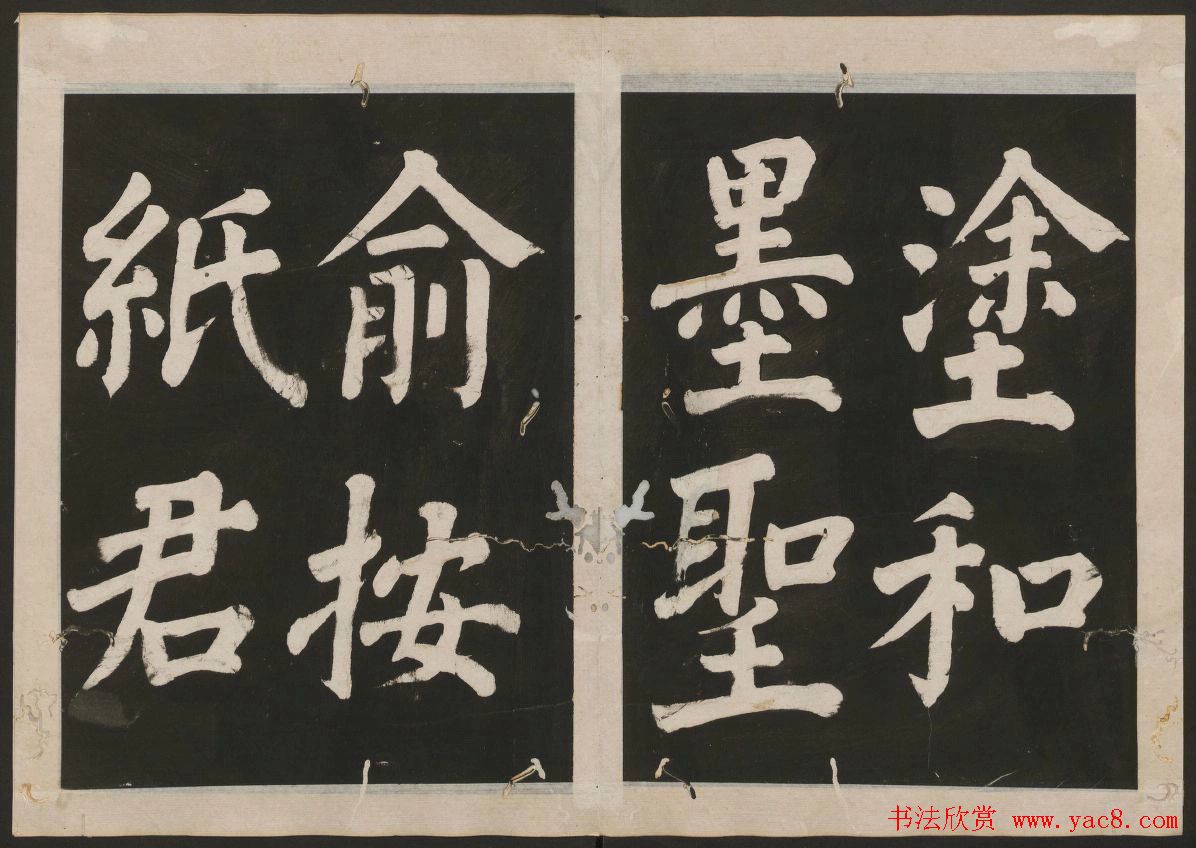 塗和
墨聖
俞按
紙君
书法欣赏 www.yac8.com